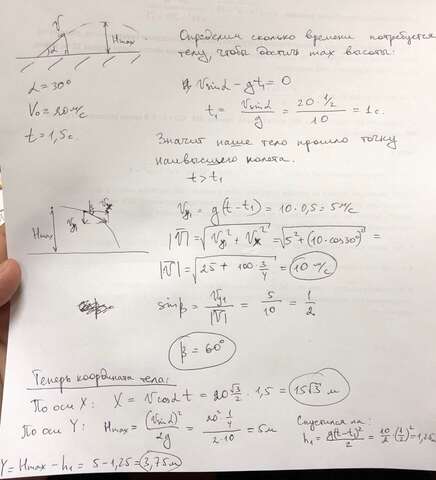 V
Hmax
α
α = 30°
V₀ = 20 м/с
t = 1,5 с.
Определим сколько времени потребуется
телу, чтобы достичь max высоты:
V sin α − gt₁ = 0
t₁ = V sin α / g = 20 · 1/2 / 10 = 1 с.
Значит наше тело прошло точку
наивысшего полета.
t > t₁
Hmax
Vy₁ = g(t − t₁) = 10 · 0,5 = 5 м/с
|V̄| = √(Vy² + Vx²) = √(5² + (10 · cos 30°)²) =
|V̄| = √(25 + 100 · 3/4) = 10 м/с
sin β = Vy₁ / |V̄| = 5/10 = 1/2
β = 60°
Теперь координата тела:
По оси X: X = V cos α t = 20 √3/2 · 1,5 = 15√3 м
По оси Y: Hmax = (V sin α)² / 2g = 20² · 1/4 / 2·10 = 5 м
Спустился на:
h₁ = g(t − t₁)² / 2 = 10/2 (1/2)² = 1,25
Y = Hmax − h₁ = 5 − 1,25 = 3,75 м